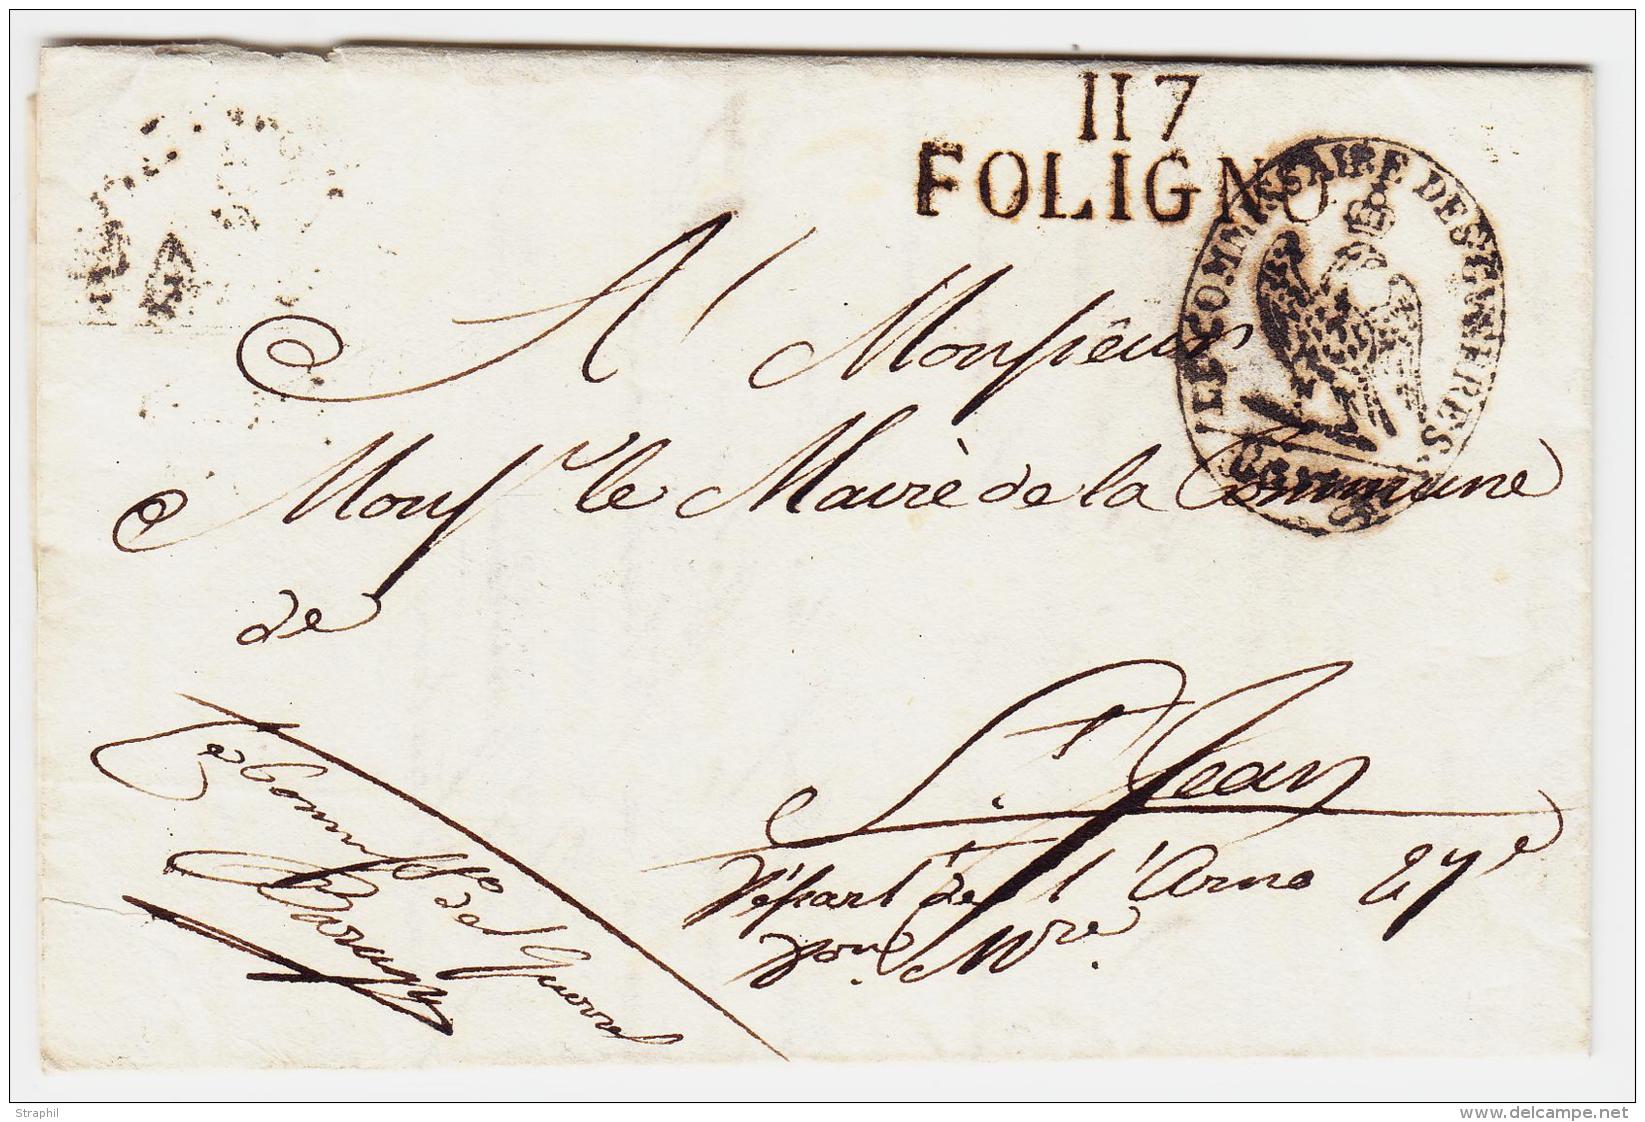 117
FOLIGNO
LE COMMISSAIRE DES GUERRES
A Monsieur
Mons.r le Maire de la Commune
de
S.t Jean
Départ.t de l'Arno 27.e
Don. M.re
Le Commiss.re de Guerre
Straphil
www.delcampe.net